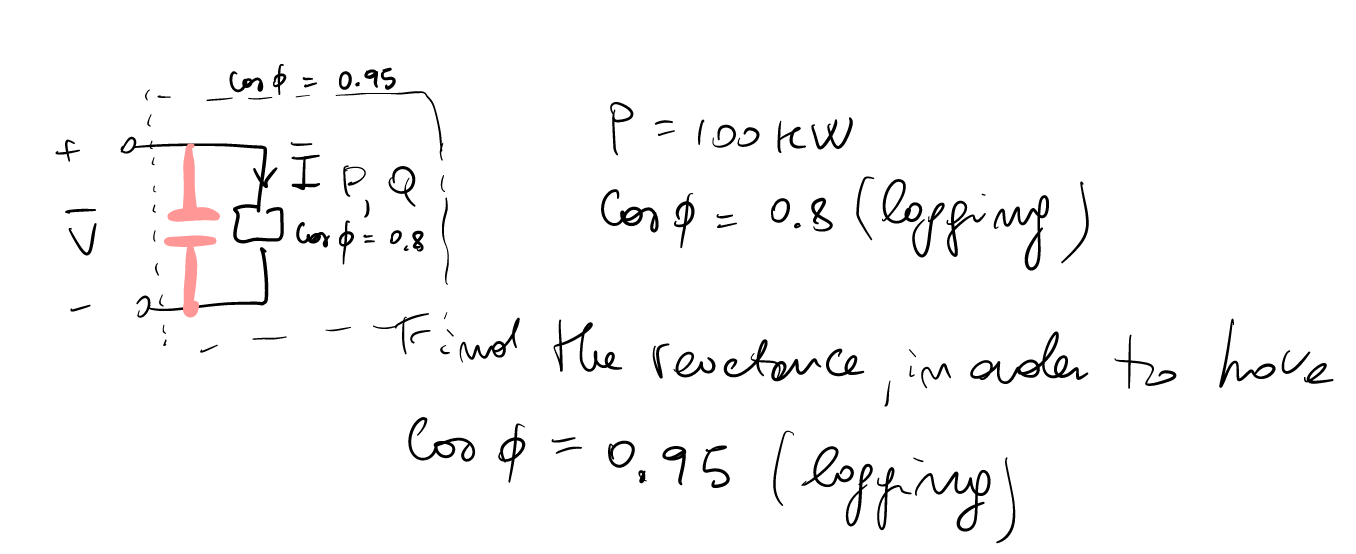 cos ϕ = 0.95
+
V̅
-
I̅ P, Q
cos ϕ = 0.8
P = 100 kW
cos ϕ = 0.8 (lagging)
Find the reactance, in order to have
cos ϕ = 0.95 (lagging)